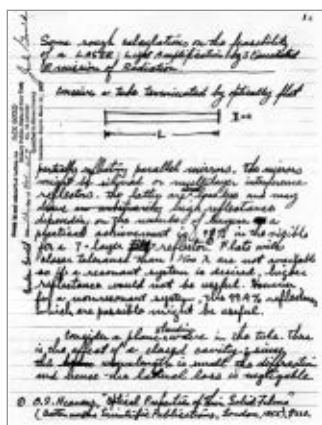 Some rough calculations on the feasibility
of a LASER: Light Amplification by Stimulated
Emission of Radiation
conceive a tube terminated by optically flat
L
partially reflecting parallel mirrors. The mirrors
might be silvered or multilayer interference
reflectors. The latter are lossless and may
have high reflectance
depending on the number of layers. A
practical achievement is 98% in the visible
for a 7-layer reflector. Flats with
closer tolerance than are not available
so if a resonant system is desired, higher
reflectance would not be useful. However
for a nonresonant system, the 99.9% reflectances
which are possible might be useful.
Consider a plane standing wave in the tube. There
is the effect of a closed cavity; since
the wavelength is small the diffraction
and hence the lateral loss is negligible
O.S. Heavens, "Optical Properties of Thin Solid Films"
(Butterworths Scientific Publications, London, 1955)